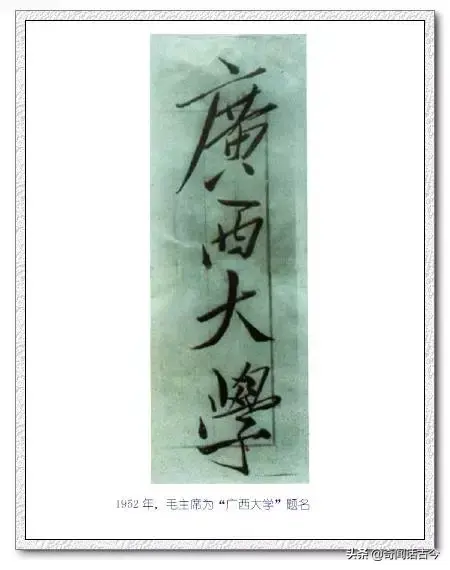 廣西大學
1952年，毛主席为“广西大学”题名
头条@奇闻话古今